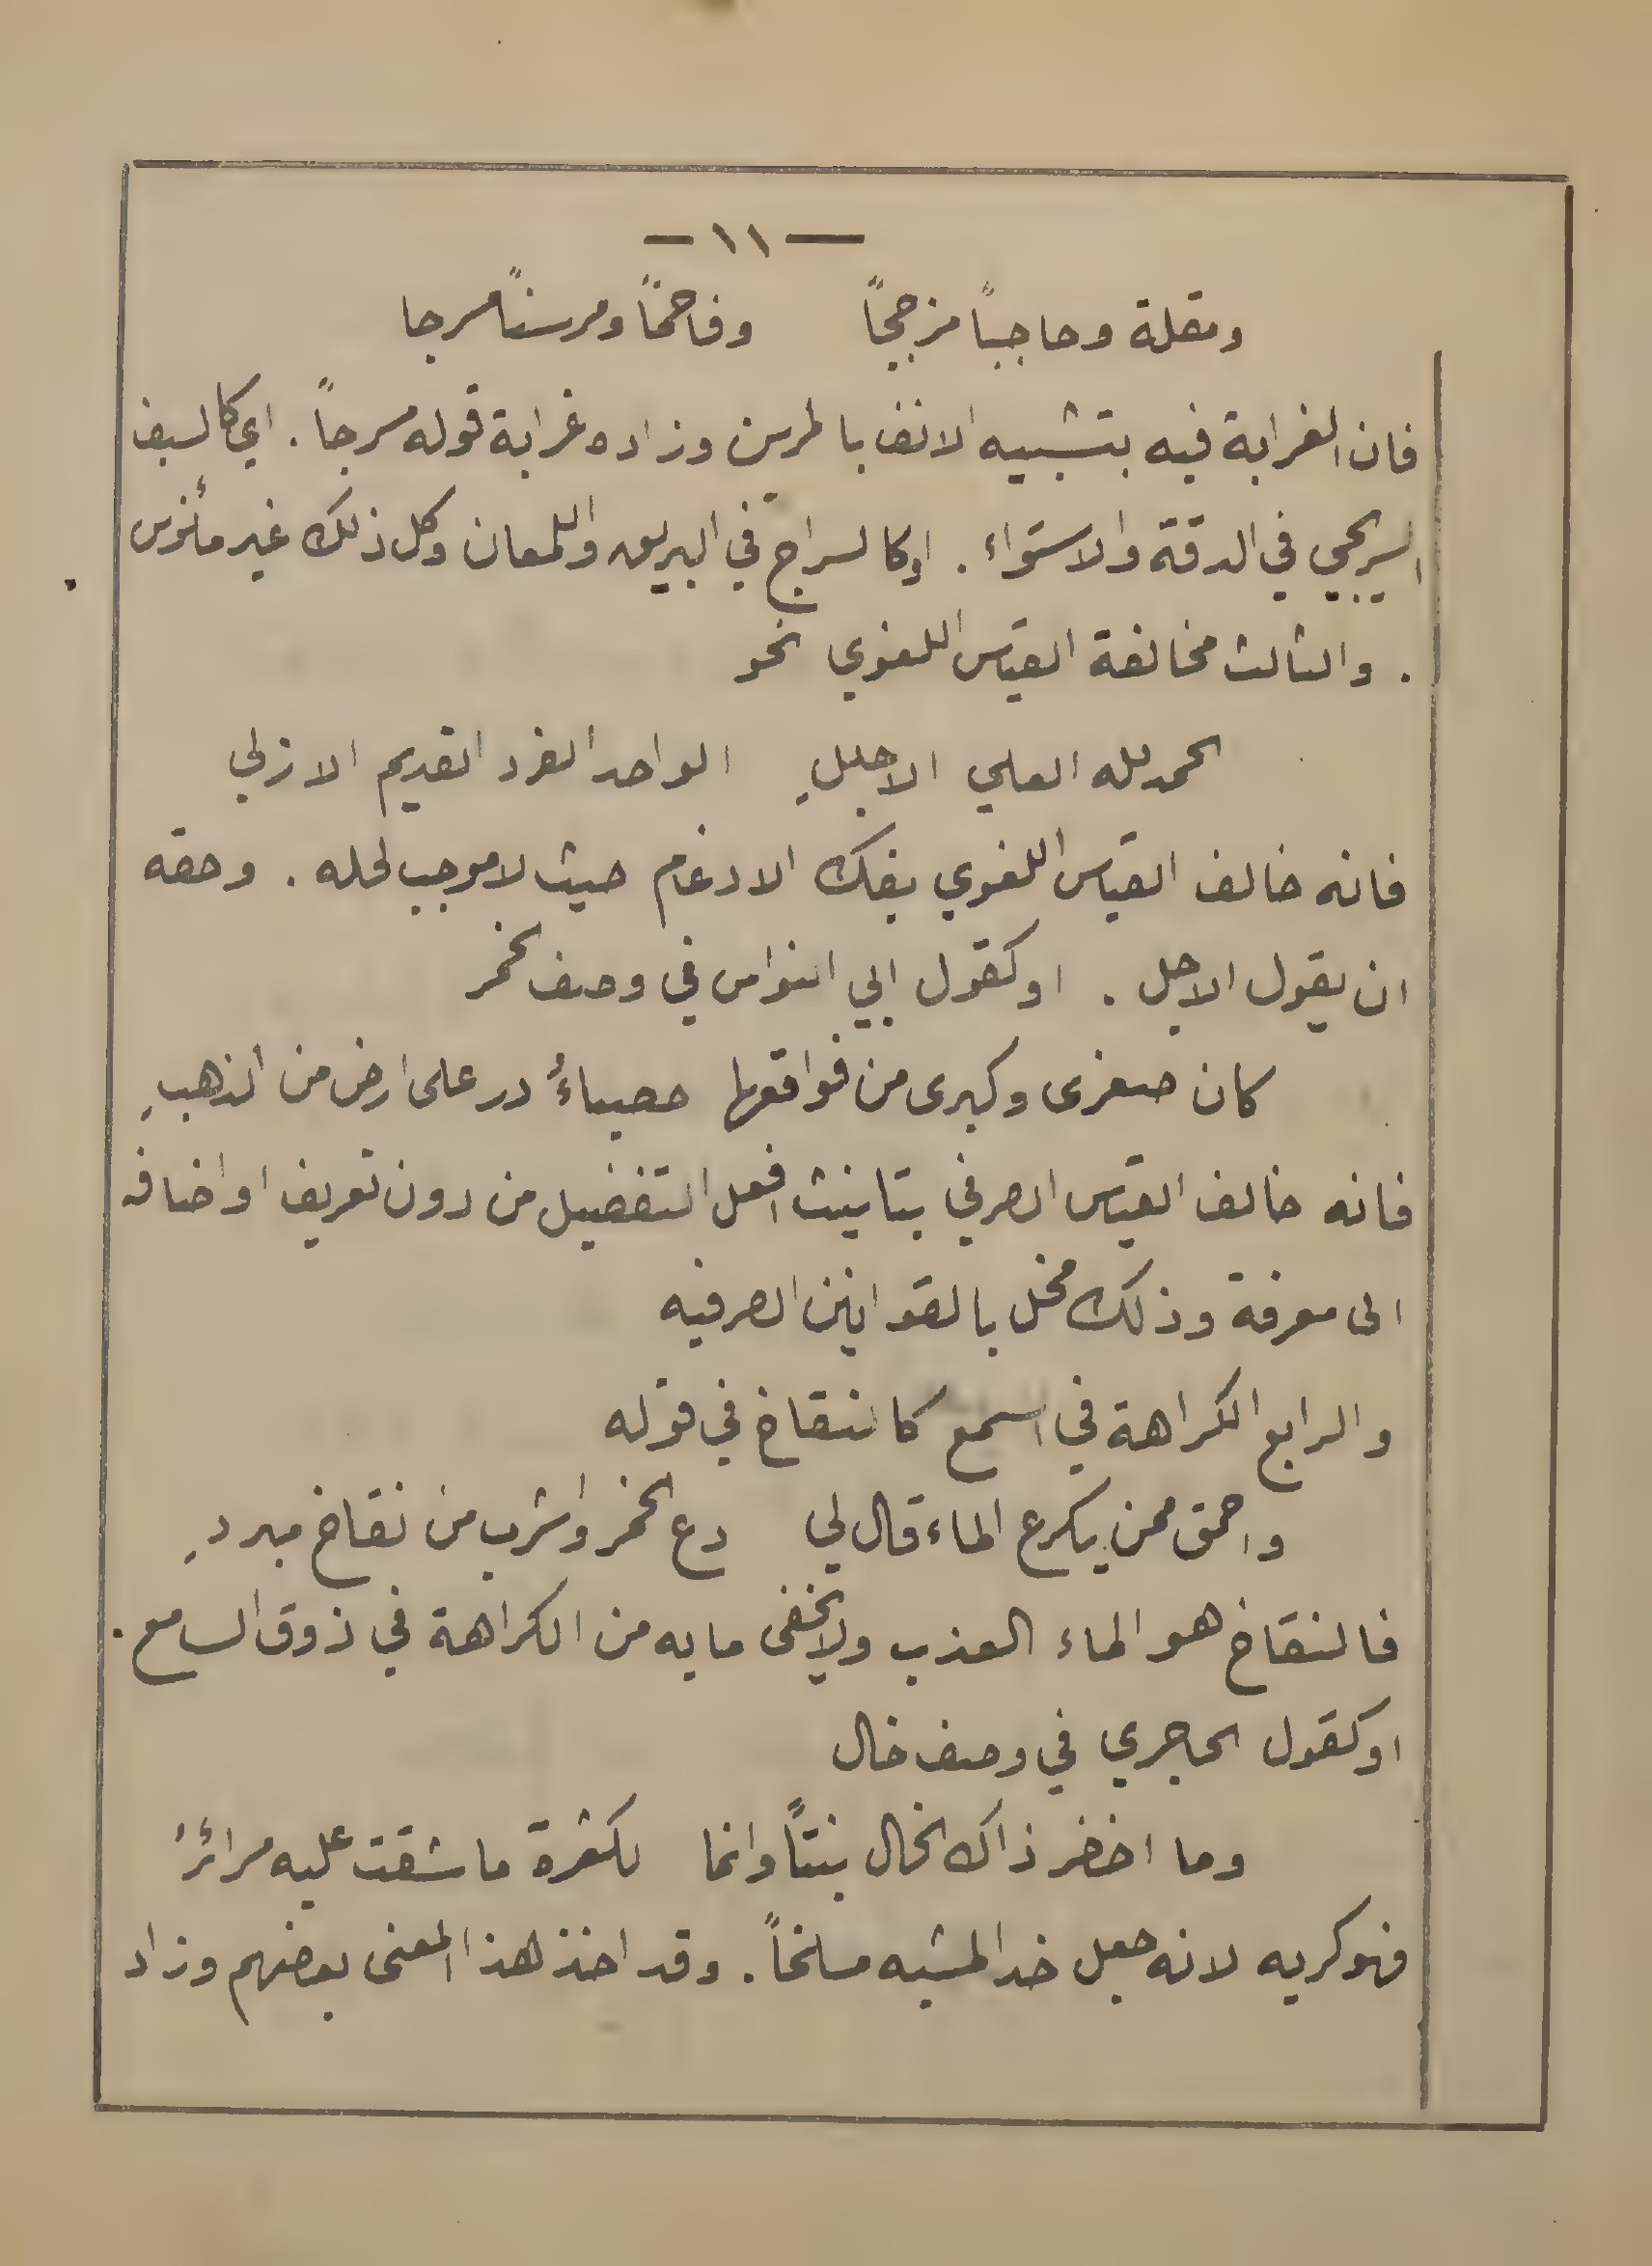 — ١١ —
ومقلة وحاجباً مزججاً وفاحماً ومرسناً مسرجا
فان الغرابة فيه بتشبيه الانف بالمرسن وزاده غرابة قوله مسرجاً . اي كالسيف
السريجي في الدقة والاستواء . او كالسراج في البريق واللمعان وكل ذلك غير مأنوس
. والثالث مخالفة القياس اللغوي نحو
الحمد لله العلي الاجللِ الواحد الفرد القديم الازلي
فانه خالف القياس اللغوي بفك الادغام حيث لا موجب لحله . وحقه
ان يقول الاجل . او كقول ابي النواس في وصف خمر
كان صغرى وكبرى من فواقعها حصباءُ در على ارض من الذهبِ
فانه خالف القياس الصرفي بتانيث افعل التفضيل من دون تعريف او اضافه
الى معرفة وذلك مخل بالقوانين الصرفيه
والرابع الكراهة في السمع كالنقاخ في قوله
واحمق ممن يكرع الماء قال لي دع الخمر واشرب من نقاخ مبردِ
فالنقاخ هو الماء العذب ولا يخفى ما به من الكراهة في ذوق السامع .
او كقول الحاجري في وصف خال
وما اخضر ذاك الخال نبتاً وانما لكثرة ما شقت عليه مرائرُ
فهو كريه لانه جعل خد المشبه مسلخاً . وقد اخذ هذا المعنى بعضهم وزاد